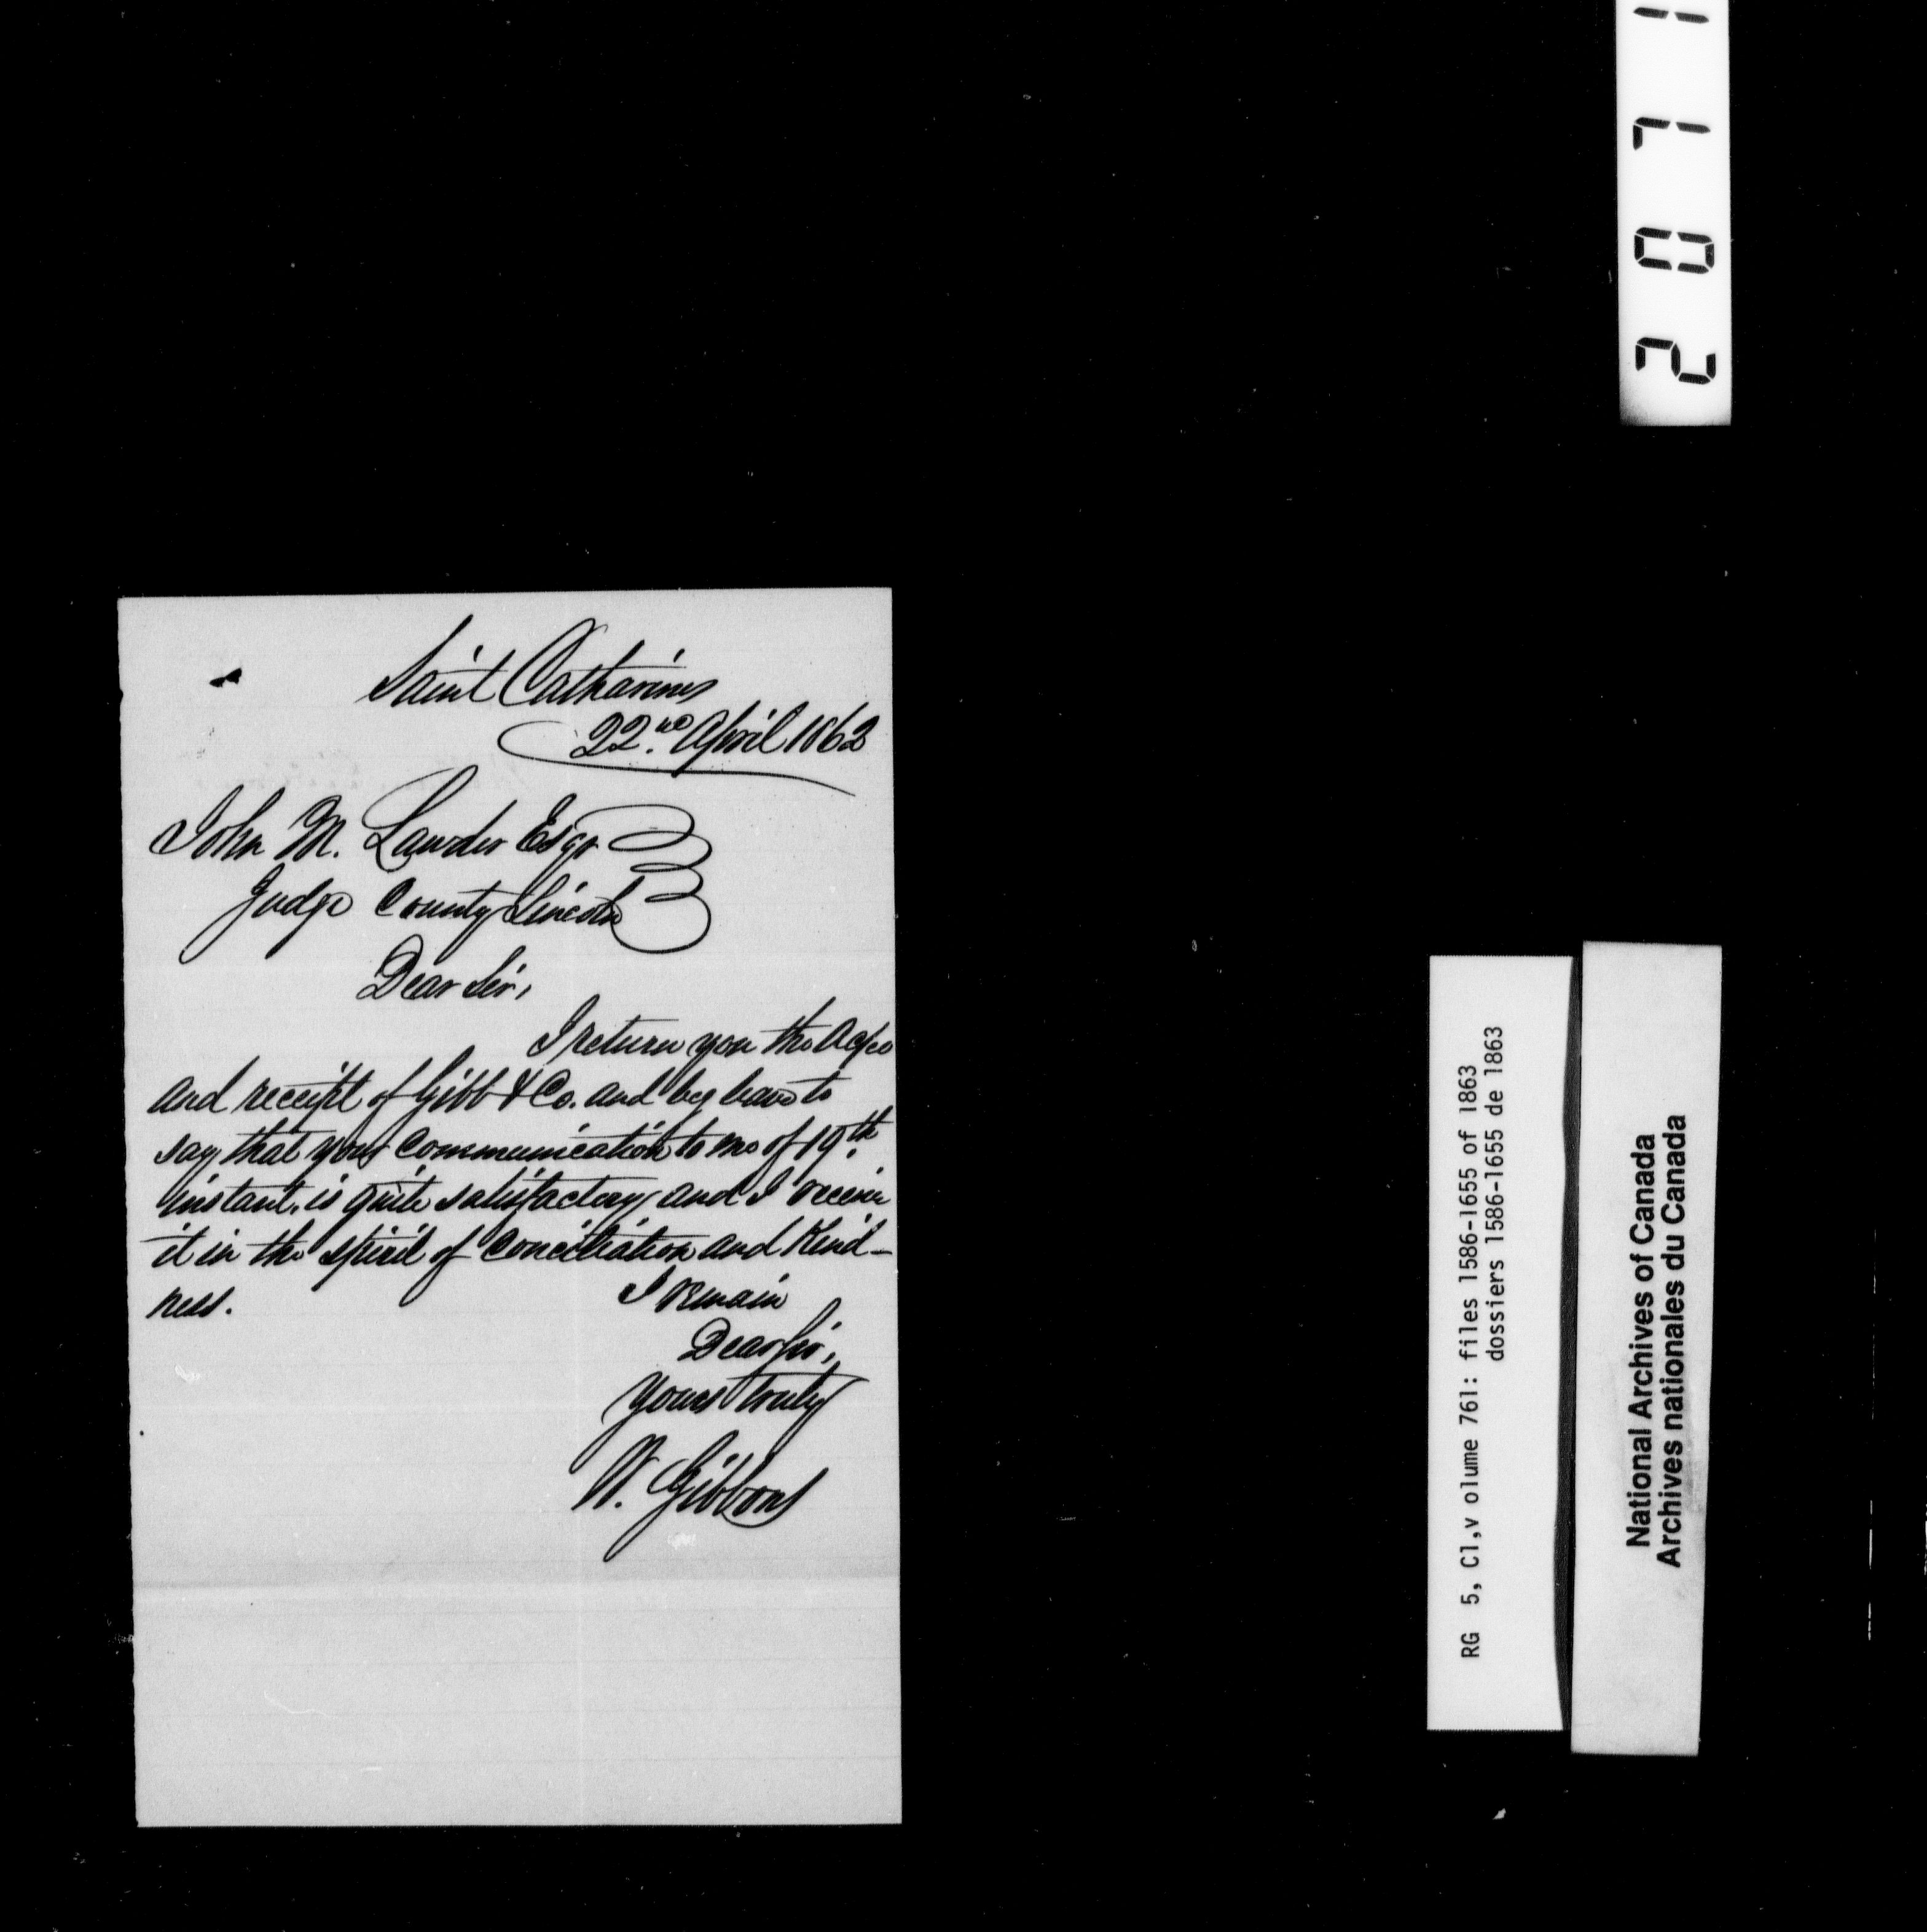 Saint Catharines
22.nd April 1862
John M. Lawder Esqr
Judge County Lincoln
Dear Sir,
I return you the
and receipt of Gibb & Co. and beg leave to
say that your communication to me of 19.th
instant, is quite satisfactory, and I receive
it in the spirit of conciliation and Kind-
ness.
I remain
Dear Sir,
Yours truly
W. Gibbons
2071
RG 5, C1,v olume 761: files 1586-1655 of 1863
dossiers 1586-1655 de 1863
National Archives of Canada
Archives nationales du Canada